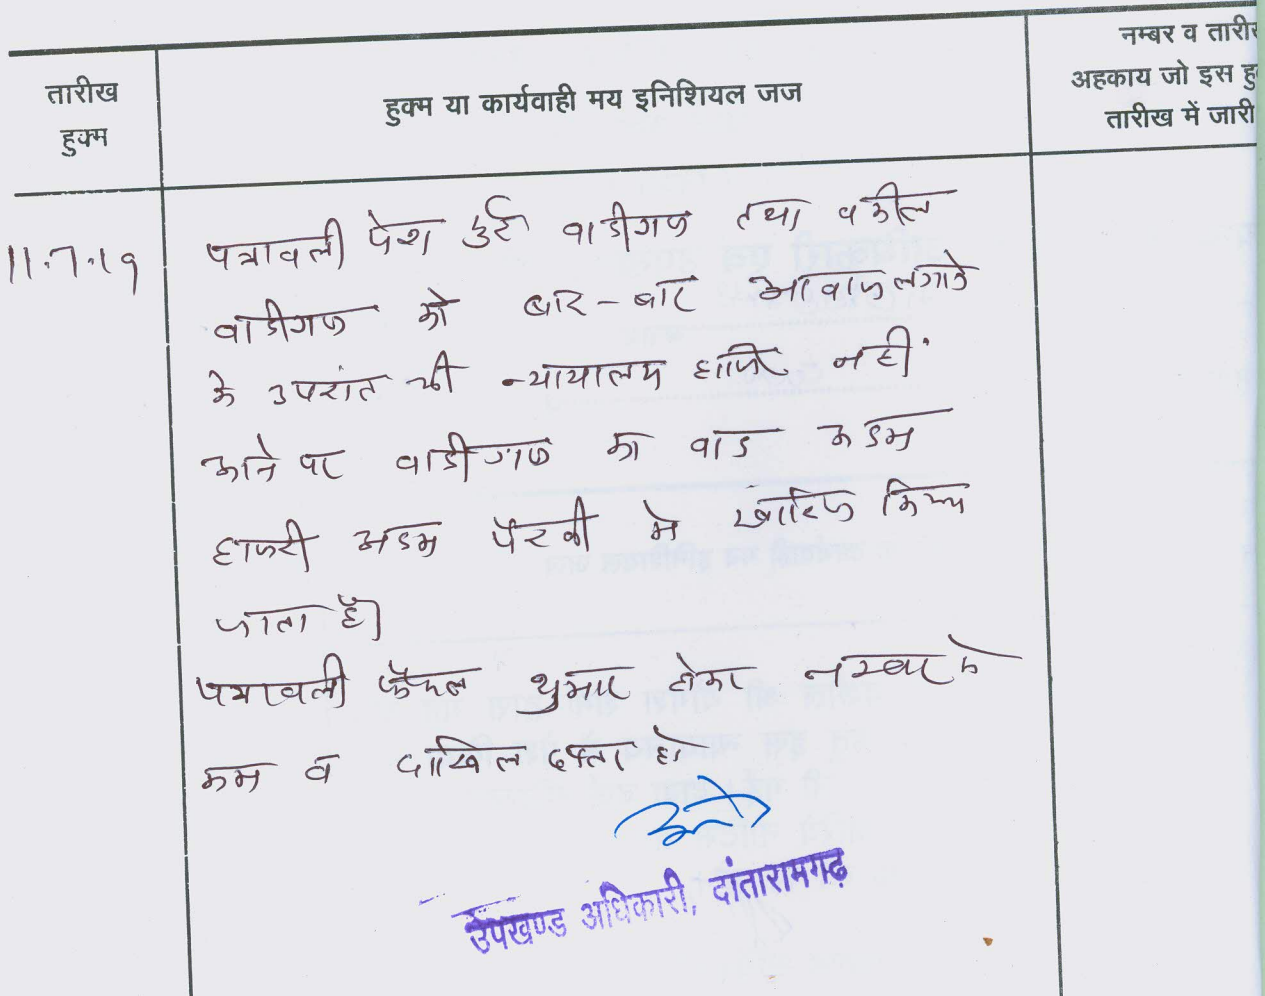 तारीख
हुक्म
हुक्म या कार्यवाही मय इनिशियल जज
नम्बर व तारीख
अहकाय जो इस हु
तारीख में जारी
11.7.19
पत्रावली पेश हुई वादीगण तथा वकील
वादीगण को बार-बार आवाज लगाने
के उपरांत भी न्यायालय हाजिर नहीं
आने पर वादीगण का वाद अदम
हाजरी अदम पैरवी में खारिज किया
जाता है।
पत्रावली फैसल शुमार होकर नम्बर से
कम व दाखिल दफ्तर हो
उपखण्ड अधिकारी, दांतारामगढ़